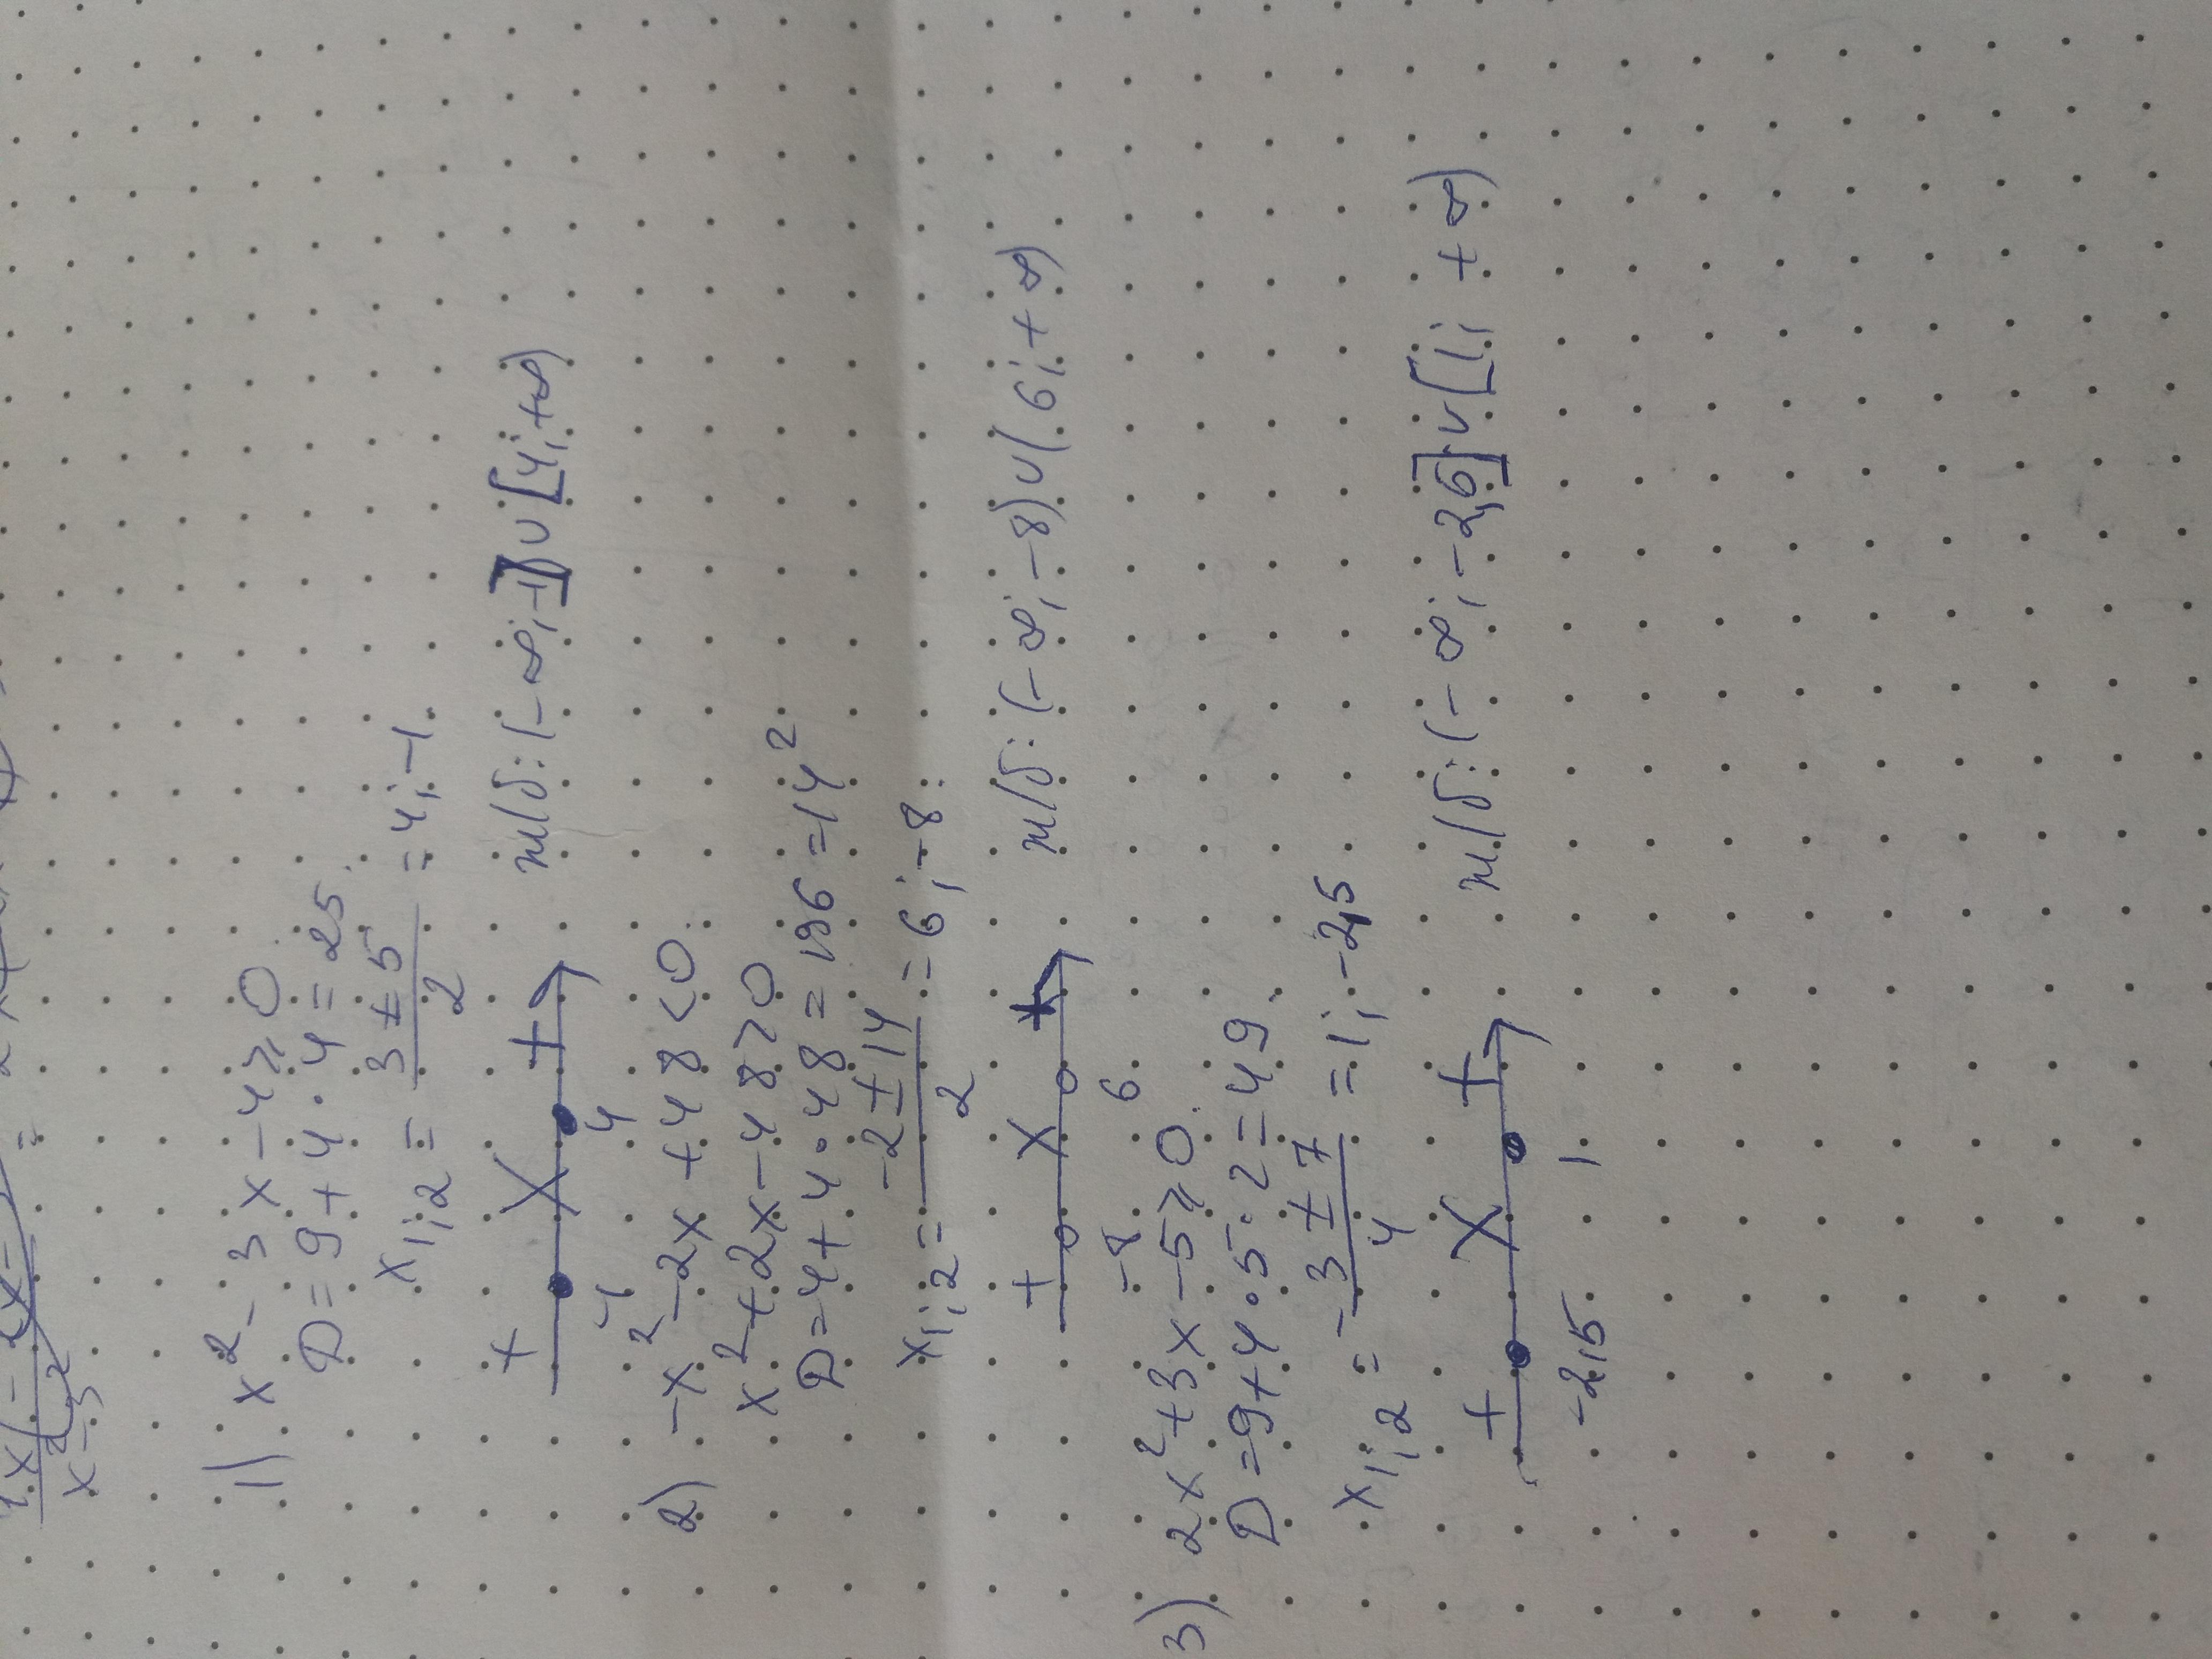 1) x² - 3x - 4 ≥ 0
D = 9 + 4 · 4 = 25.
x₁;₂ = (3 ± 5)/2 = 4; -1.
+ X + м/б: (-∞; -1] ∪ [4; +∞)
-1 4
2) -x² - 2x + 48 < 0.
x² + 2x - 48 > 0
D = 4 + 4 · 48 = 196 = 14²
x₁;₂ = (-2 ± 14)/2 = 6; -8.
+ X + м/б: (-∞; -8) ∪ (6; +∞)
-8 6
3) 2x² + 3x - 5 ≥ 0.
D = 9 + 4 · 5 · 2 = 49.
x₁;₂ = (-3 ± 7)/4 = 1; -2,5
+ X + м/б: (-∞; -2,5] ∪ [1; +∞)
-2,5 1